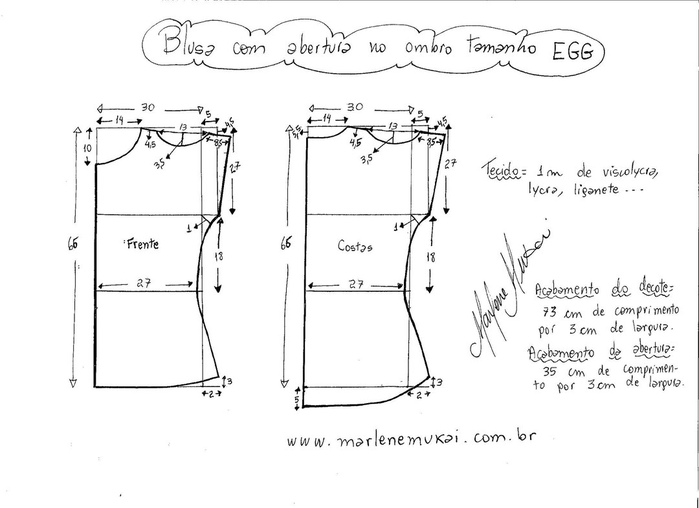 Blusa com abertura no ombro tamanho EGG
30
5
14
13
4,5
10
4,5
3,5
8,5
27
66
1
Frente
18
27
3
2
30
5
13
4,5
14
4,5
3,5
8,5
27
66
1
Costas
18
27
3
2
5
Tecido = 1m de viscolycra,
lycra, liganete ...
Marlene Mukai
Acabamento do decote =
73 cm de comprimento
por 3 cm de largura.
Acabamento da abertura =
35 cm de comprimen-
to por 3 cm de largura.
www.marlenemukai.com.br